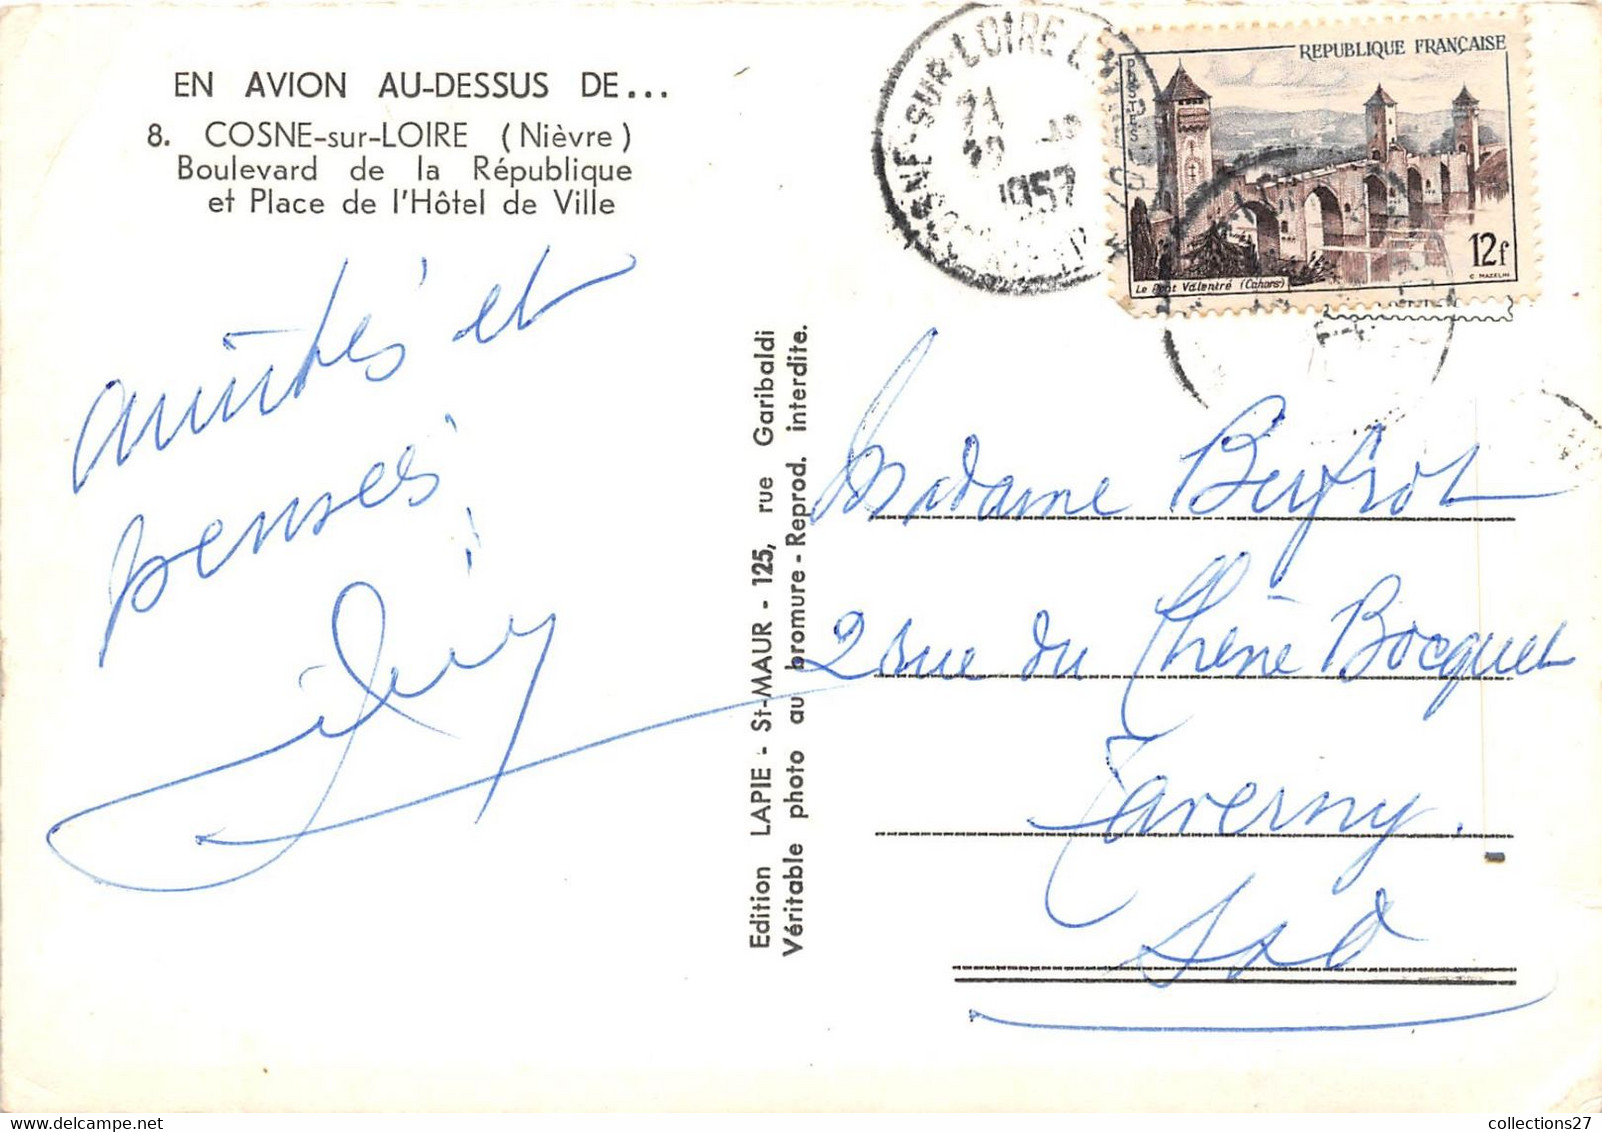 EN AVION AU-DESSUS DE...
8. COSNE-sur-LOIRE (Nièvre)
Boulevard de la République
et Place de l'Hôtel de Ville
amitiés et
pensées
Edition LAPIE - St-MAUR - 125, rue Garibaldi
Véritable photo au bromure - Reprod. interdite.
SUR-LOIRE
21
1957
REPUBLIQUE FRANÇAISE
POSTES
12f
Le Pont Valentré (Cahors)
C. MAZELIN
Madame
2 rue du Chêne Bocquet
Taverny.
S & O
collections27